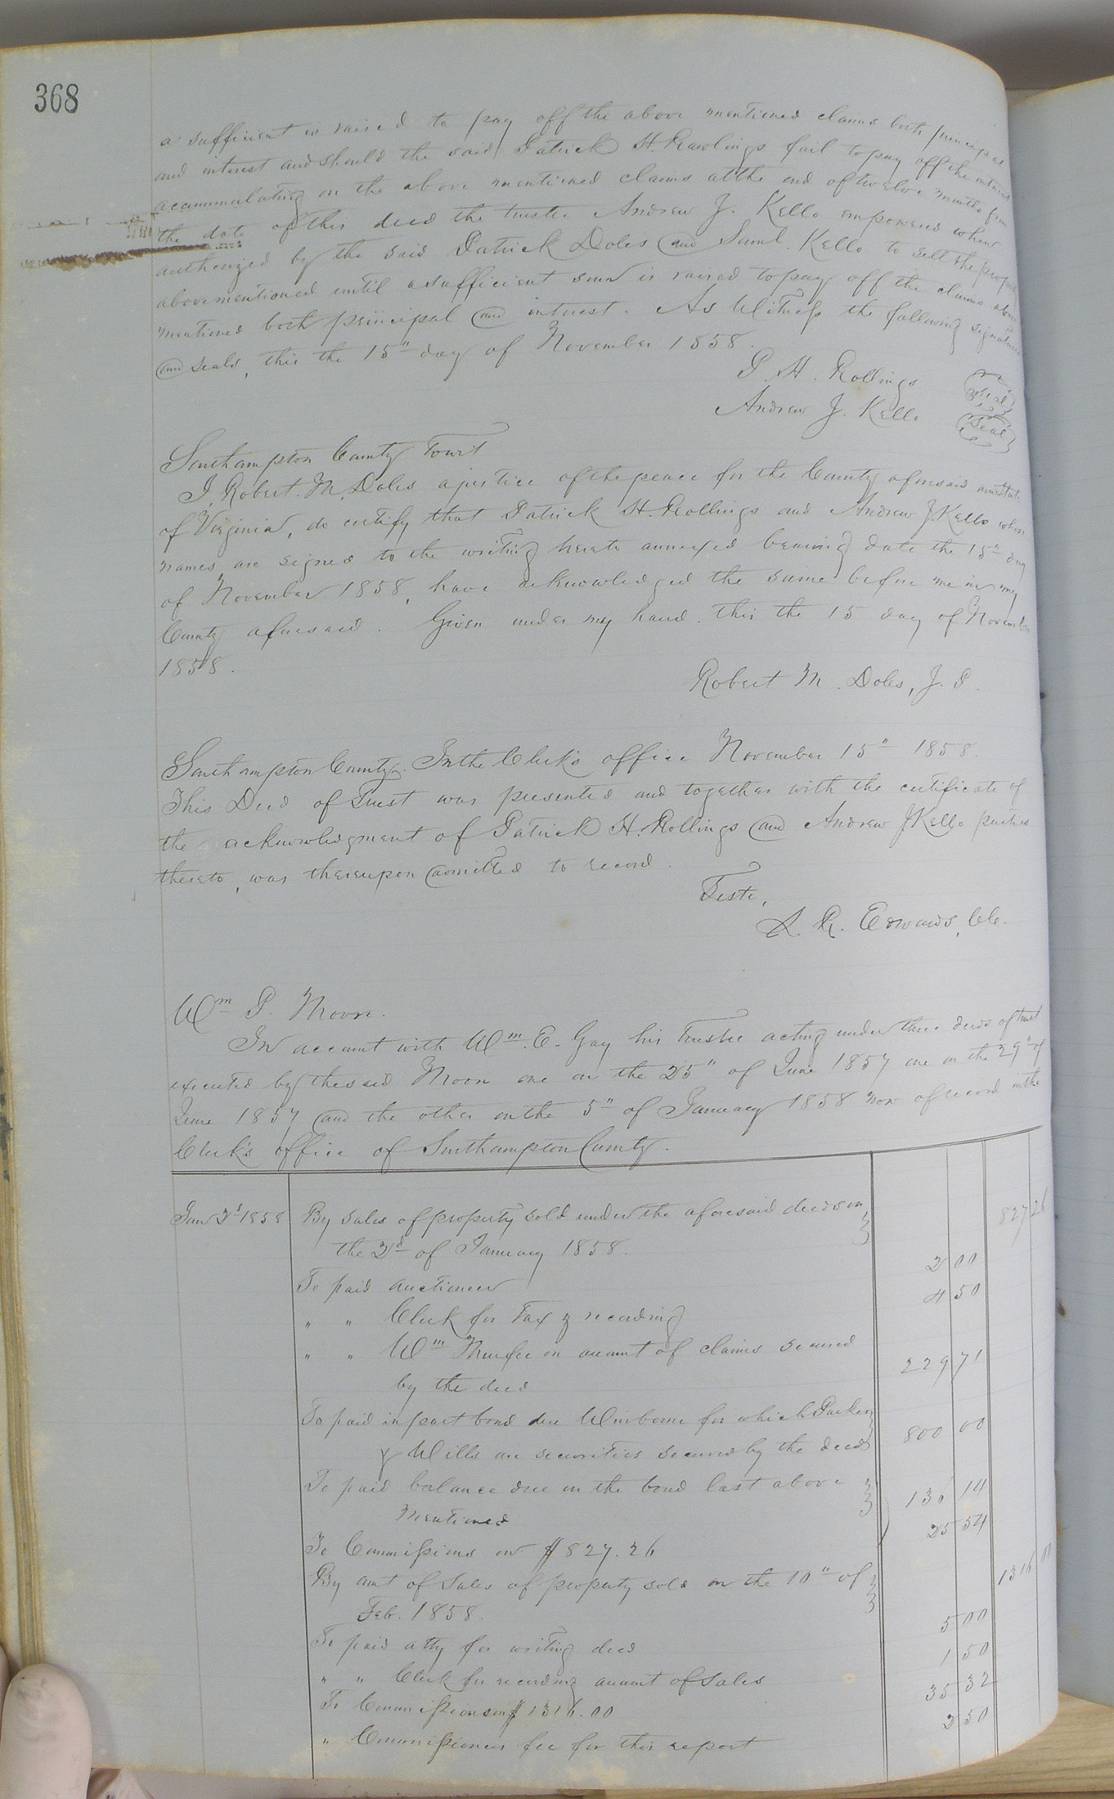 368
a sufficient is raised to pay off the above mentioned claims both principal
and interest and should the said Patrick H. Rawlings fail to pay off the interest
accummulating on the above mentioned claims at the end of twelve months from
the date of this deed the trustee Andrew J. Kello empowered when
authorized by the said Patrick Doles and Saml. Kello to sell the property
above mentioned until a sufficient sum is raised to pay off the claims above
mentioned both principal and interest. As Witness the following signatures
and seals, this the 15" day of November 1858.
P. H. Rollings Seal
Andrew J. Kello Seal
Southampton County Court
I, Robert. M. Doles a justice of the peace for the County aforesaid and State
of Virginia, do certify that Patrick H. Rollings and Andrew J Kello whose
names are signed to the writing hereto annexed bearing date the 15" day
of November 1858, have acknowledged the same before me in my
County aforesaid. Given under my hand this the 15 day of November
1858.
Robert M. Doles, J. P.
Southampton County. In the Clerk's office November 15" 1858.
This Deed of Trust was presented and together with the certificate of
the acknowledgment of Patrick H. Rollings and Andrew J Kello parties
thereto, was thereupon admitted to record.
Teste,
L. R. Edwards, Clk.
Wm P. Moore.
In account with Wm. E. Gay his Trustee acting under three deeds of trust
executed by the said Moore one on the 25" of June 1857 one on the 29" of
June 1857 and the other on the 5" of January 1858 now of record in the
Clerk's office of Southampton County.
Jany 2d 1858 By sales of property sold under the aforesaid deeds on 827 26
the 2d of January 1858.
To paid auctioneer 2 00
" " Clerk for Tax & recording 4 50
" " Wm on amount of claims secured
by the deed 229 71
To paid in part bond due Winborne for which Parker
& Wills are securities secured by the deed 800 00
To paid balance due on the bond last above
mentioned 136 14
To Commissions on $827.26 25 54
By amt of sales of property sold on the 10" of 1316 00
Feb. 1858.
To paid atty for writing deed 5 00
" " Clerk for recording amount of sales 1 50
To Commissions on $1316.00 35 32
" Commissioners fee for this report 2 50